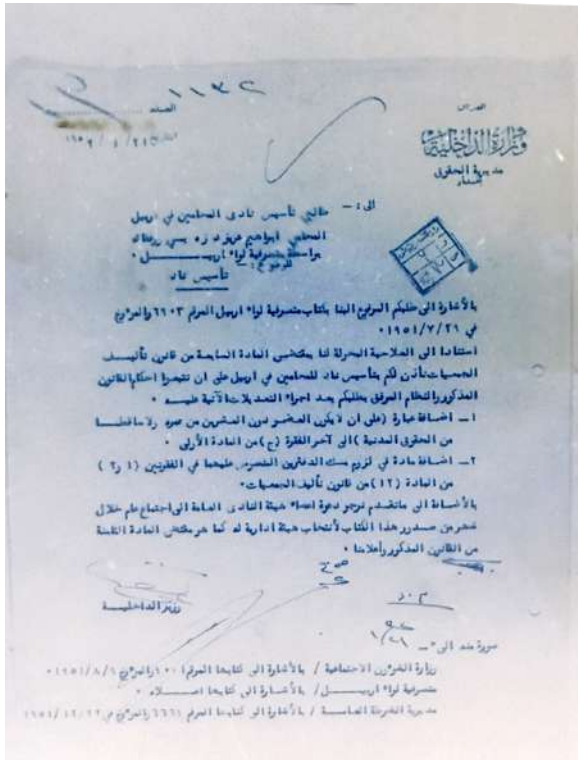 العدد ١١٣٢
العراق
وزارة الداخلية
مديرية الحقوق
بغداد
الى :- طالبي تأسيس نادى المحامين في اربيل
المحامي ابراهيم عزيز دزه يي ورفاقه
بواسطة متصرفية لواء اربيـــل ٠
الموضوع :-
تأسيس ناد
بالأشارة الى طلبكم المرفوع الينا بكتاب متصرفية لواء اربيل المرقم ٦٦٠٣ والمؤرخ
في ١٩٥١/٧/٢٦ ٠
استنادا الى الصلاحية المخولة لنا بمقتضى المادة السابعة من قانون تأليف
الجمعيات نأذن لكم بتأسيس ناد للمحامين في اربيل على ان تتبعوا احكام القانون
المذكور والنظام المرفق بطلبكم بعد اجراء التعديلات الآتية عليه ٠
١ــ اضافة عبارة (على ان لا يكون العضو دون العشرين من عمره ولا ساقطا
من الحقوق المدنية ) الى آخر الفقرة (ج) من المادة الأولى ٠
٢ــ اضافة مادة في لزوم مسك الدفترين المنصوص عليهما في الفقرتين (١ و٢ )
من المادة (١٢) من قانون تأليف الجمعيات ٠
بالأضافة الى ماتقدم نرجو دعوة اعضاء هيئة النادى العامة الى اجتماع عام خلال
شهر من صدور هذا الكتاب لأنتخاب هيئة ادارية له كما هو مقتضى المادة الثامنة
من القانون المذكور وأعلامنا ٠
وزير الداخليـــة
صورة منه الى :-
وزارة الشؤون الاجتماعية / بالأشارة الى كتابها المرقم والمؤرخ ١٩٥١/٨/٦ ٠
متصرفية لواء اربيـــل / بالأشارة الى كتابها اعـــلاه ٠
مديرية الشرطة العامـــة / بالأشارة الى كتابها المرقم ٦٦٦١ والمؤرخ في ١٩٥١/١٢/٢٢